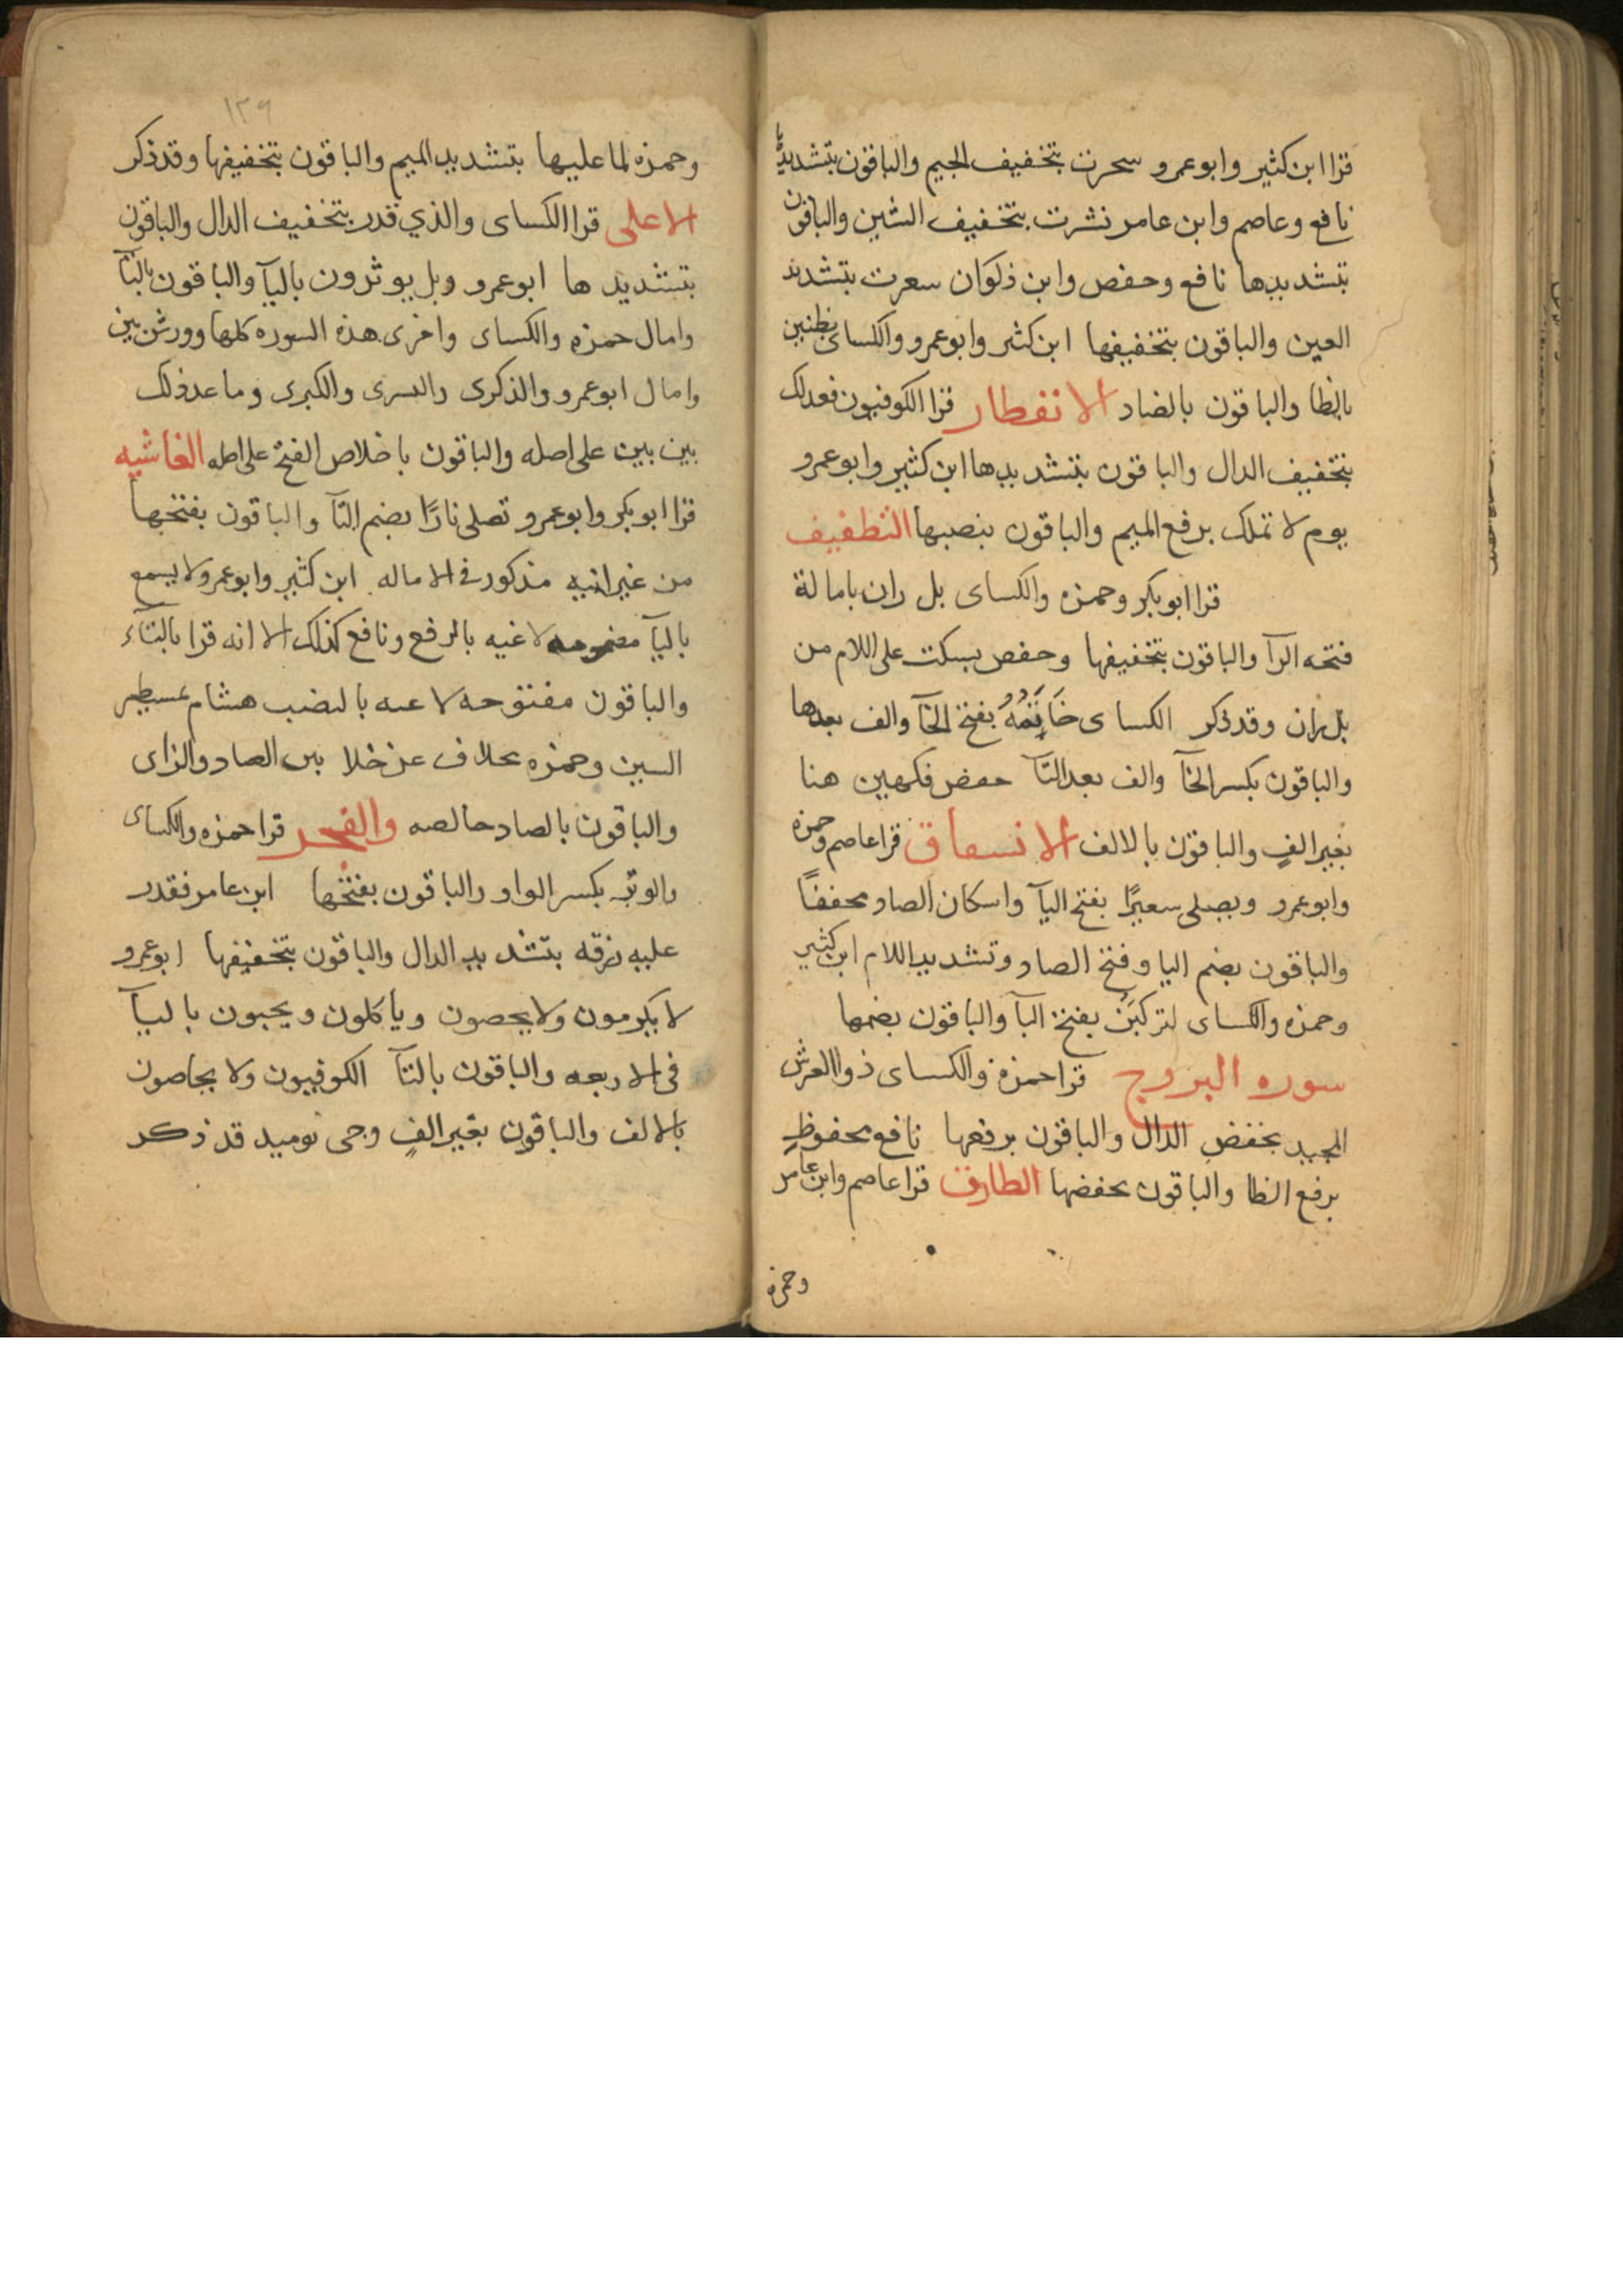 قرا ابن كثير وابو عمرو سجرت بتخفيف الجيم والباقون بتشديدها
نافع وعاصم وابن عامر نشرت بتخفيف الشين والباقون
بتشديدها نافع وحفص وابن ذكوان سعرت بتشديد
العين والباقون بتخفيفها ابن كثير وابو عمرو والكساى بظنين
بالظا والباقون بالضاد الانفطار قرا الكوفيون فعدلك
بتخفيف الدال والباقون بتشديدها ابن كثير وابو عمرو
يوم لا تملك برفع الميم والباقون بنصبها التطفيف
قرا ابو بكر وحمزه والكساى بل ران بامالة
فتحه الرآ والباقون بتخفيفها وحفص يسكت على اللام من
بل ران وقد ذكر الكساى خَاتَمُهُ بفتح الخآ والف بعدها
والباقون بكسر الخآ والف بعد التآ حفص فكهين هنا
بغير الفٍ والباقون بالالف الانسقاق قرا عاصم وحمزه
وابو عمرو ويصلى سعيرًا بفتح اليآ واسكان الصاد مخففًا
والباقون بضم اليا وفتح الصاد وتشديد اللام ابن كثير
وحمزه والكساى لتركبَن بفتح البآ والباقون بضمها
سوره البروج قرا حمزه والكساى ذوا العرش
المجيد بخفض الدال والباقون برفعها نافع محفوظٍ
برفع الظا والباقون بخفضها الطارق قرا عاصم وابن عامر
وحمزه
١٣٩
وحمزه لما عليها بتشديد الميم والباقون بتخفيفها وقد ذكر
الاعلى قرا الكساى والذي قدر بتخفيف الدال والباقون
بتشديدها ابو عمرو وبل يوثرون باليآ والباقون بالتآ
وامال حمزه والكساى واخرى هذه السوره كلها وورش بين
وامال ابو عمرو والذكرى واليسرى والكبرى وما عدذلك
بين بين على اصله والباقون باخلاص الفتح على اصله الغاشيه
قرا ابو بكر وابو عمرو تصلى نارًا بضم التآ والباقون بفتحها
من غير انيه مذكور فى الاماله ابن كثير وابو عمرو لا يسمع
باليآ مضمومه لاغيه بالرفع ونافع كذلك الا انه قرا بالتاء
والباقون مفتوحه لاعيه بالنصب هشام عسيطر
السين وحمزه بخلاف عن خلا بين الصاد والزاى
والباقون بالصاد خالصه والفجر قرا حمزه والكساى
والوتر بكسر الواو والباقون بفتحها ابن عامر فقدر
عليه رزقه بتشديد الدال والباقون بتخفيفها ابو عمرو
لا يكرمون ولا يحصون وياكلون ويحبون باليآ
فى الاربعه والباقون بالتآ الكوفيون ولا يحاصون
بالالف والباقون بغير الفٍ وجى يوميد قد ذكر